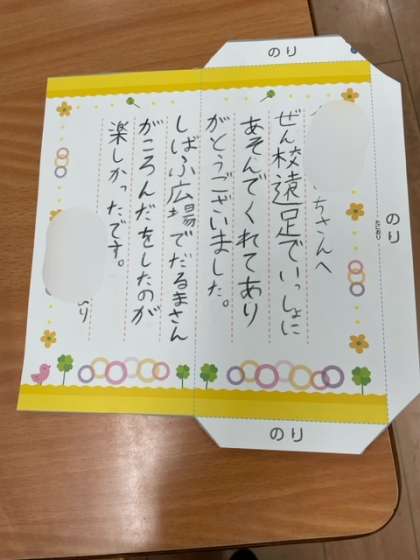 ちさんへ
ぜん校遠足でいっしょに
あそんでくれてあり
がとうございました。
しばふ広場でだるまさん
がころんだをしたのが
楽しかったです。
より
のり
のり
のり